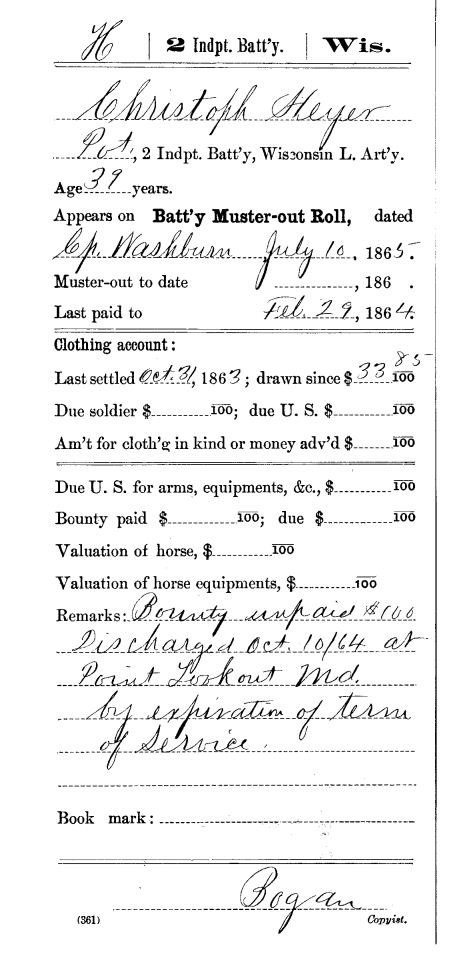 H | 2 Indpt. Batt'y. | Wis.
Christoph Heyer
Pvt, 2 Indpt. Batt'y, Wisconsin L. Art'y.
Age 39 years.
Appears on Batt'y Muster-out Roll, dated
Cp. Washburn July 10, 1865.
Muster-out to date , 186 .
Last paid to Feb. 29, 1864.
Clothing account:
Last settled Oct. 31, 1863; drawn since $ 33 85/100
Due soldier $ 100; due U. S. $ 100
Am't for cloth'g in kind or money adv'd $ 100
Due U. S. for arms, equipments, &c., $ 100
Bounty paid $ 100; due $ 100
Valuation of horse, $ 100
Valuation of horse equipments, $ 100
Remarks: Bounty unpaid $100
Discharged Oct. 10/64 at
Point Lookout Md.
by expiration of term
of Service.
Book mark:
Bogan
(361) Copyist.